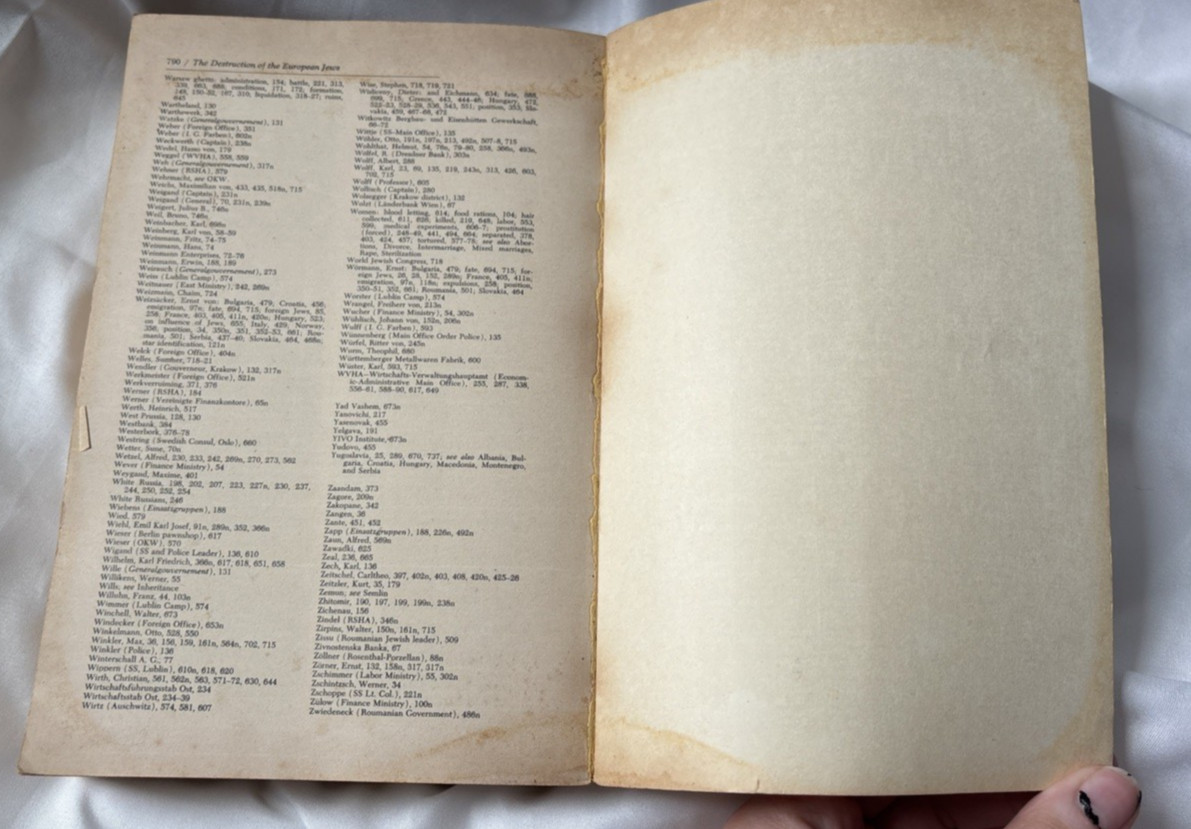 790 / The Destruction of the European Jews
Warsaw ghetto: administration, 154; battle, 321, 313,
Wartheland, 130
Warthewerk, 342
Watzke (Generalgouvernement), 131
Weber (Foreign Office), 351
Weber (I. G. Farben), 602n
Weckwerth (Captain), 238n
Wedel, Hasso von, 179
Weggel (WVHA), 558, 559
Weh (Generalgouvernement), 317n
Wehner (RSHA), 579
Wehrmacht, see OKW
Weichs, Maximilian von, 433, 435, 518n, 715
Weigand (Captain), 231n
Weigand (General), 70, 231n, 239n
Weigert, Julius B., 746n
Weil, Bruno, 746n
Weinbacher, Karl, 696n
Weinberg, Karl von, 58-59
Weinmann, Fritz, 74-75
Weinmann, Hans, 74
Weinmann Enterprises, 72-76
Weinmann, Erwin, 188, 189
Weirauch (Generalgouvernement), 273
Weiss (Lublin Camp), 574
Weitnauer (East Ministry), 242, 269n
Weizmann, Chaim, 724
Weizsäcker, Ernst von: Bulgaria, 479; Croatia, 456;
emigration, 97n; fate, 694, 715; foreign Jews, 85,
258; France, 403, 405, 411n, 420n; Hungary, 523;
on influence of Jews, 655; Italy, 429; Norway,
356; position, 34, 350n, 351, 352-53, 661; Rou-
mania, 501; Serbia, 437-40; Slovakia, 464, 468n;
star identification, 121n
Welck (Foreign Office), 404n
Welles, Sumner, 718-21
Wendler (Gouverneur, Krakow), 132, 317n
Werkmeister (Foreign Office), 521n
Werkverruiming, 371, 376
Werner (RSHA), 184
Werner (Vereinigte Finanzkontore), 65n
Werth, Heinrich, 517
West Prussia, 128, 130
Westbank, 384
Westerbork, 376-79
Westring (Swedish Consul, Oslo), 660
Wetter, Sune, 70n
Wetzel, Alfred, 230, 233, 242, 269n, 270, 273, 562
Wever (Finance Ministry), 54
Weygand, Maxime, 401
White Russia, 198, 202, 207, 223, 227n, 230, 237,
244, 250, 252, 254
White Russians, 246
Wiebens (Einsatzgruppen), 188
Wied, 579
Wiehl, Emil Karl Josef, 91n, 289n, 352, 366n
Wiener (Berlin pawnshop), 617
Wieser (OKW), 570
Wigand (SS and Police Leader), 136, 610
Wilhelm, Karl Friedrich, 366n, 617, 618, 651, 658
Wille (Generalgouvernement), 131
Willikens, Werner, 55
Wills, see Inheritance
Willuhn, Franz, 44, 103n
Wimmer (Lublin Camp), 574
Winchell, Walter, 673
Windecker (Foreign Office), 653n
Winkelmann, Otto, 528, 550
Winkler, Max, 36, 156, 159, 161n, 564n, 702, 715
Winkler (Police), 136
Winterschall A. G., 77
Wippern (SS, Lublin), 610n, 618, 620
Wirth, Christian, 561, 562n, 563, 571-72, 630, 644
Wirtschaftsführungsstab Ost, 234
Wirtschaftsstab Ost, 234-39
Wirtz (Auschwitz), 574, 581, 607
Wise, Stephen, 718, 719, 721
Wisliceny, Dieter: and Eichmann, 634; fate, 688,
699, 715; Greece, 443, 444-46; Hungary, 472,
522-23, 528-29, 536, 543, 551; position, 353; Slo-
vakia, 459, 467-68, 472
Witkowitz Bergbau- und Eisenhütten Gewerkschaft,
66-72
Wittje (SS-Main Office), 135
Wöhler, Otto, 191n, 197n, 213, 492n, 507-8, 715
Wohlthat, Helmut, 54, 76n, 79-80, 258, 366n, 493n,
Wölfel, R. (Dresdner Bank), 303n
Wolff, Albert, 286
Wolff, Karl, 23, 69, 135, 219, 243n, 313, 426, 603,
702, 715
Wolff (Professor), 605
Wollisch (Captain), 280
Wolsegger (Krakow district), 132
Wolzt (Länderbank Wien), 67
Women: blood letting, 614; food rations, 104; hair
collected, 611, 626; killed, 219, 648; labor, 553,
599; medical experiments, 606-7; prostitution
(forced), 248-49, 441, 494, 664; separated, 378,
403, 424, 457; tortured, 577-78; see also Abor-
tions, Divorce, Intermarriage, Mixed marriages,
Rape, Sterilization
World Jewish Congress, 718
Wörmann, Ernst: Bulgaria, 479; fate, 694, 715; for-
eign Jews, 26, 28, 152, 289n; France, 405, 411n;
emigration, 97n, 118n; expulsions, 258; position,
350-51, 352, 661; Roumania, 501; Slovakia, 464
Worster (Lublin Camp), 574
Wrangel, Freiherr von, 213n
Wucher (Finance Ministry), 54, 302n
Wühlisch, Johann von, 152n, 206n
Wulff (I. G. Farben), 593
Wünnenberg (Main Office Order Police), 135
Würfel, Ritter von, 245n
Wurm, Theophil, 660
Württemberger Metallwaren Fabrik, 600
Wüster, Karl, 593, 715
WVHA—Wirtschafts-Verwaltungshauptamt (Econom-
ic-Administrative Main Office), 255, 287, 338,
556-61, 588-90, 617, 649
Yad Vashem, 673n
Yanovichi, 217
Yasenovak, 455
Yelgava, 191
YIVO Institute, 673n
Yudovo, 455
Yugoslavia, 25, 289, 670, 737; see also Albania, Bul-
garia, Croatia, Hungary, Macedonia, Montenegro,
and Serbia
Zaandam, 373
Zagore, 209n
Zakopane, 342
Zangen, 36
Zante, 451, 452
Zapp (Einsatzgruppen), 188, 226n, 492n
Zaun, Alfred, 569n
Zawadki, 625
Zeal, 236, 665
Zech, Karl, 136
Zeitschel, Carltheo, 397, 402n, 403, 408, 420n, 425-26
Zeitzler, Kurt, 35, 179
Zemun, see Semlin
Zhitomir, 190, 197, 199, 199n, 238n
Zichenau, 156
Zindel (RSHA), 346n
Zirpins, Walter, 150n, 161n, 715
Zissu (Roumanian Jewish leader), 509
Zivnostenska Banka, 67
Zöllner (Rosenthal-Porzellan), 88n
Zörner, Ernst, 132, 158n, 317, 317n
Zschimmer (Labor Ministry), 55, 302n
Zschintzsch, Werner, 34
Zschoppe (SS Lt. Col.), 221n
Zülow (Finance Ministry), 100n
Zwiedeneck (Roumanian Government), 486n